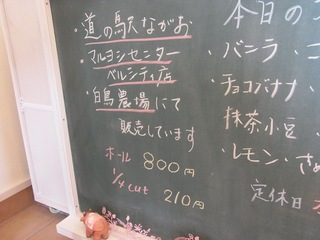 ・道の駅ながお
・マルヨシセンター
ベルシティ店
・白鳥農場にて
販売しています
ホール 800円
1/4cut 210円
本日の
・バニラ
・チョコバナナ
抹茶小豆
・レモン・さ
定休日